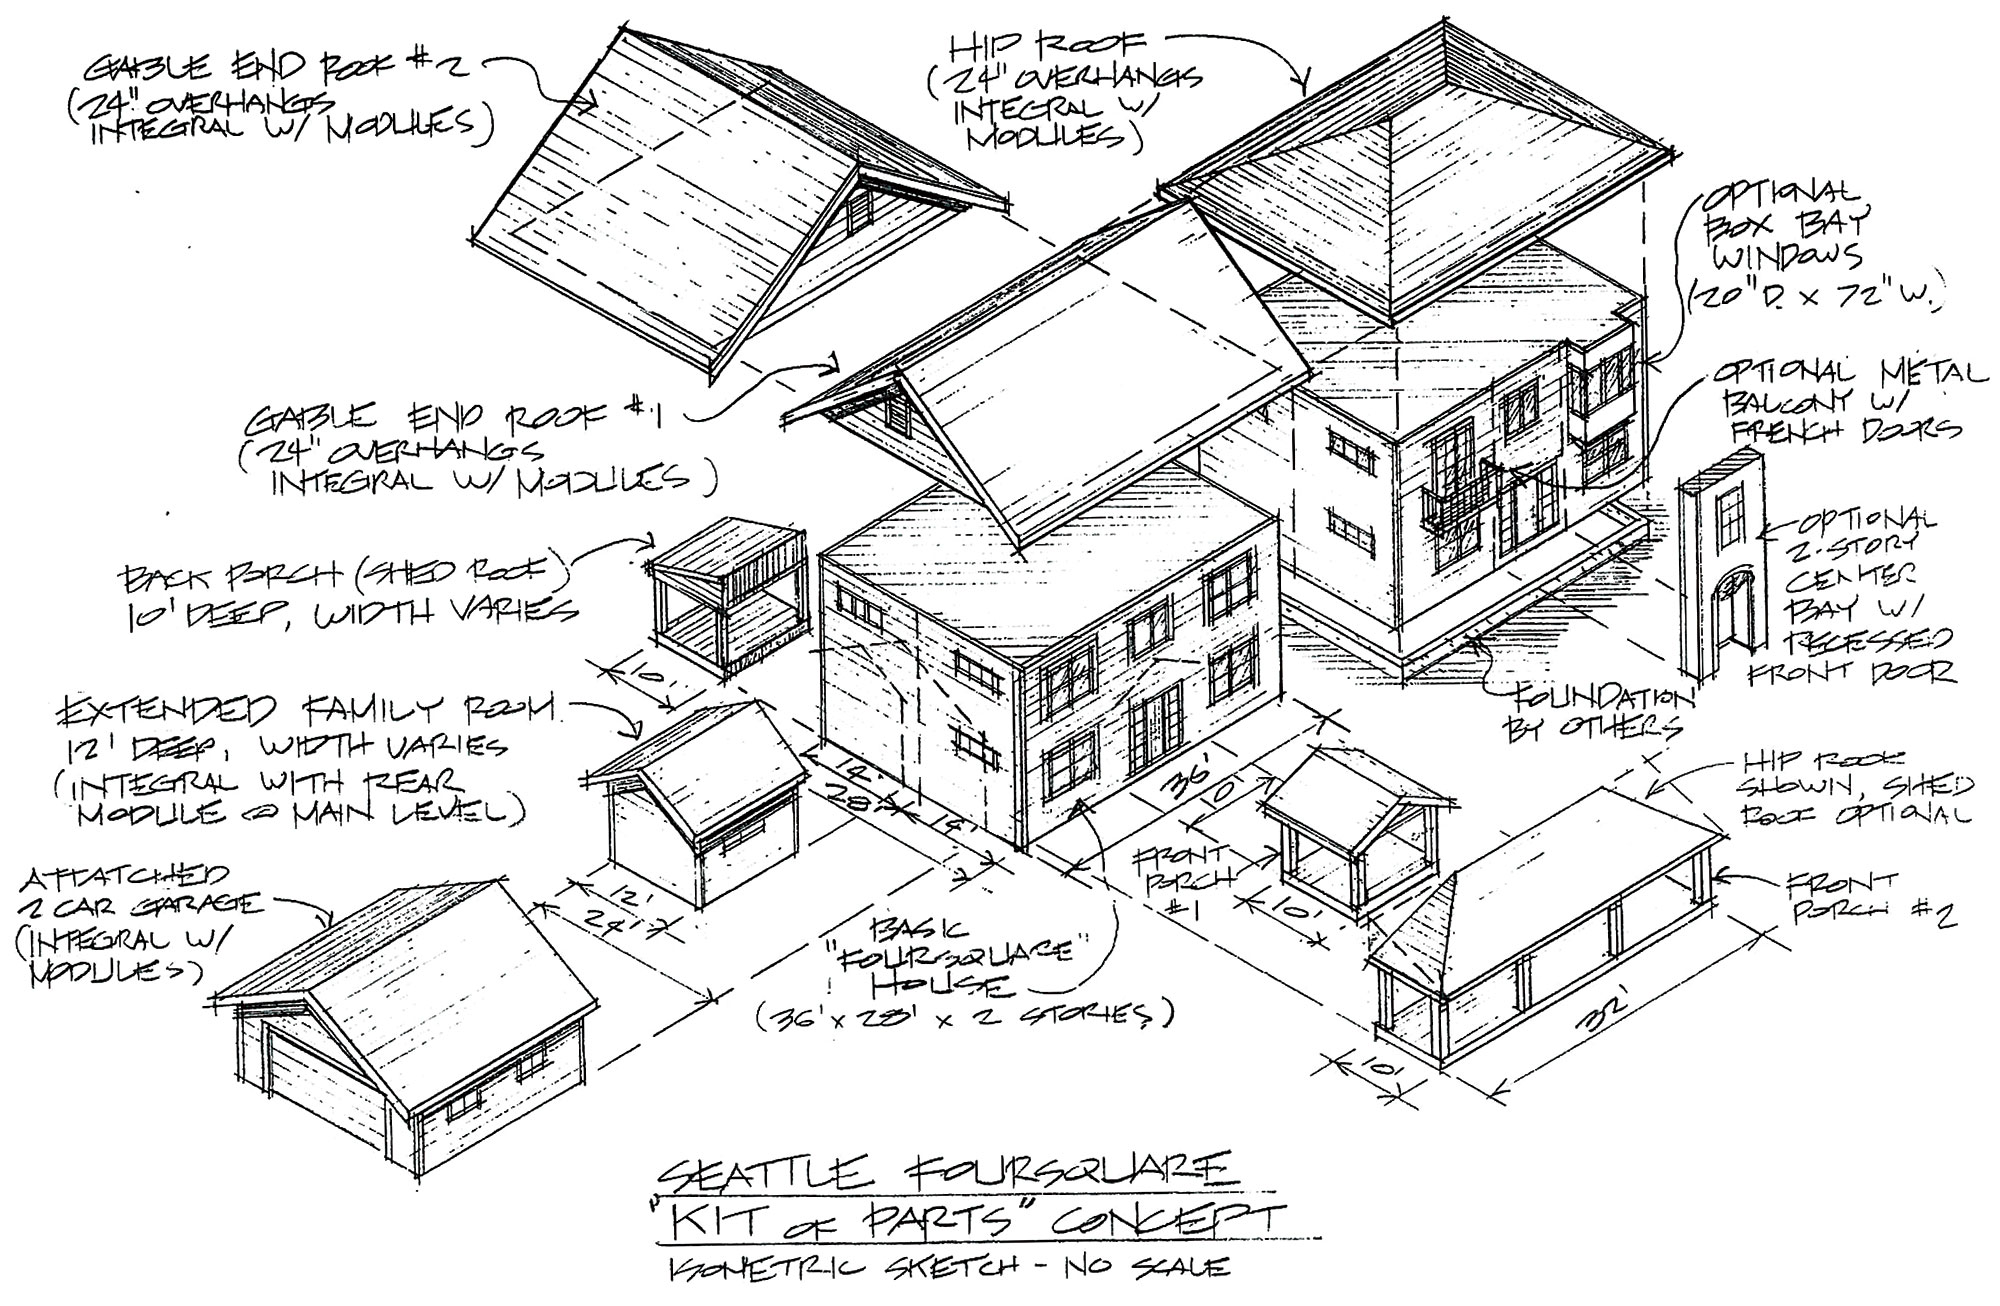 GABLE END ROOF #2
(24" OVERHANGS
INTEGRAL W/ MODULES)
HIP ROOF
(24" OVERHANGS
INTEGRAL W/
MODULES)
OPTIONAL
BOX BAY
WINDOWS
(20"D. x 72"W.)
OPTIONAL METAL
BALCONY W/
FRENCH DOORS
GABLE END ROOF #1
(24" OVERHANGS
INTEGRAL W/ MODULES)
OPTIONAL
2-STORY
CENTER
BAY W/
RECESSED
FRONT DOOR
BACK PORCH (SHED ROOF)
10' DEEP, WIDTH VARIES
10'
FOUNDATION
BY OTHERS
EXTENDED FAMILY ROOM
12' DEEP, WIDTH VARIES
(INTEGRAL WITH REAR
MODULE @ MAIN LEVEL)
14'
28'
14'
36'
HIP ROOF
SHOWN, SHED
ROOF OPTIONAL
FRONT
PORCH
#1
10'
FRONT
PORCH #2
32'
10'
ATTATCHED
2 CAR GARAGE
(INTEGRAL W/
MODULES)
12'
24'
BASIC
"FOURSQUARE"
HOUSE
(36' x 28' x 2 STORIES)
SEATTLE FOURSQUARE
"KIT OF PARTS" CONCEPT
ISOMETRIC SKETCH - NO SCALE